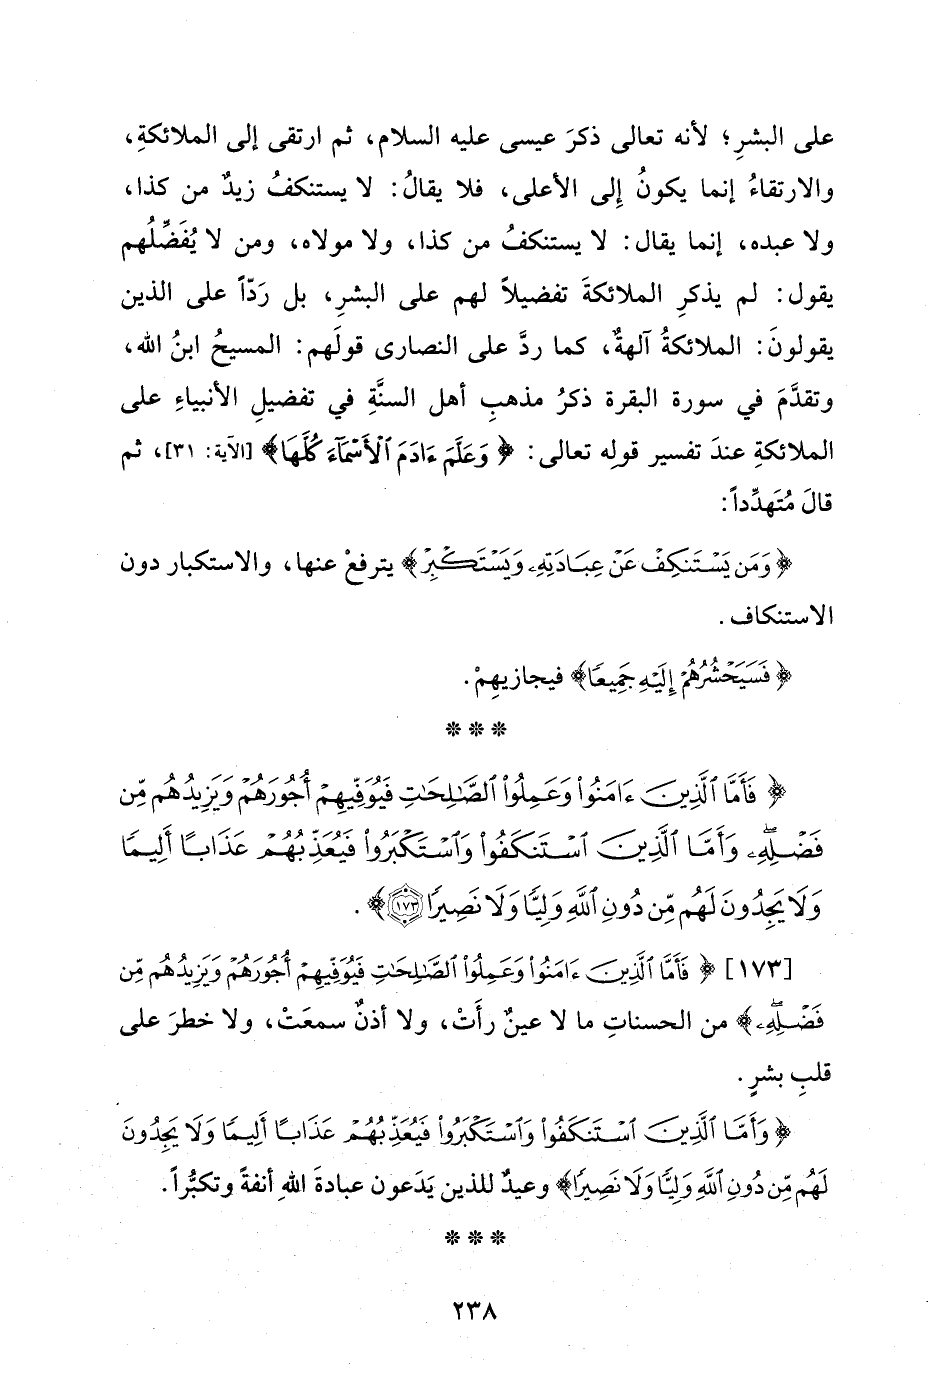 على البشرِ؛ لأنه تعالى ذكرَ عيسى عليه السلام، ثم ارتقى إلى الملائكةِ،
والارتقاءُ إنما يكونُ إلى الأعلى، فلا يقالُ: لا يستنكفُ زيدٌ من كذا،
ولا عبده، إنما يقال: لا يستنكفُ من كذا، ولا مولاه، ومن لا يُفَضِّلُهم
يقول: لم يذكرِ الملائكةَ تفضيلاً لهم على البشرِ، بل رَدّاً على الذين
يقولونَ: الملائكةُ آلهةٌ، كما ردَّ على النصارى قولَهم: المسيحُ ابنُ الله،
وتقدَّمَ في سورة البقرة ذكرُ مذهبِ أهل السنَّةِ في تفضيلِ الأنبياءِ على
الملائكةِ عندَ تفسير قولِه تعالى: ﴿وَعَلَّمَ ءَادَمَ ٱلْأَسْمَآءَ كُلَّهَا﴾ [الآية: ٣١]، ثم
قالَ مُتَهدِّداً:
﴿وَمَن يَسْتَنكِفْ عَنْ عِبَادَتِهِۦ وَيَسْتَكْبِرْ﴾ يترفعْ عنها، والاستكبار دون
الاستنكاف.
﴿فَسَيَحْشُرُهُمْ إِلَيْهِ جَمِيعًا﴾ فيجازيهِمْ.
* * *
﴿فَأَمَّا ٱلَّذِينَ ءَامَنُوا۟ وَعَمِلُوا۟ ٱلصَّـٰلِحَـٰتِ فَيُوَفِّيهِمْ أُجُورَهُمْ وَيَزِيدُهُم مِّن
فَضْلِهِۦۖ وَأَمَّا ٱلَّذِينَ ٱسْتَنكَفُوا۟ وَٱسْتَكْبَرُوا۟ فَيُعَذِّبُهُمْ عَذَابًا أَلِيمًا
وَلَا يَجِدُونَ لَهُم مِّن دُونِ ٱللَّهِ وَلِيًّا وَلَا نَصِيرًا ١٧٣﴾.
[١٧٣] ﴿فَأَمَّا ٱلَّذِينَ ءَامَنُوا۟ وَعَمِلُوا۟ ٱلصَّـٰلِحَـٰتِ فَيُوَفِّيهِمْ أُجُورَهُمْ وَيَزِيدُهُم مِّن
فَضْلِهِۦۖ﴾ من الحسناتِ ما لا عينٌ رأَتْ، ولا أذنٌ سمعَتْ، ولا خطرَ على
قلبِ بشرٍ.
﴿وَأَمَّا ٱلَّذِينَ ٱسْتَنكَفُوا۟ وَٱسْتَكْبَرُوا۟ فَيُعَذِّبُهُمْ عَذَابًا أَلِيمًا وَلَا يَجِدُونَ
لَهُم مِّن دُونِ ٱللَّهِ وَلِيًّا وَلَا نَصِيرًا﴾ وعيدٌ للذين يَدَعون عبادةَ اللهِ أنفةً وتكبُّراً.
* * *
٢٣٨